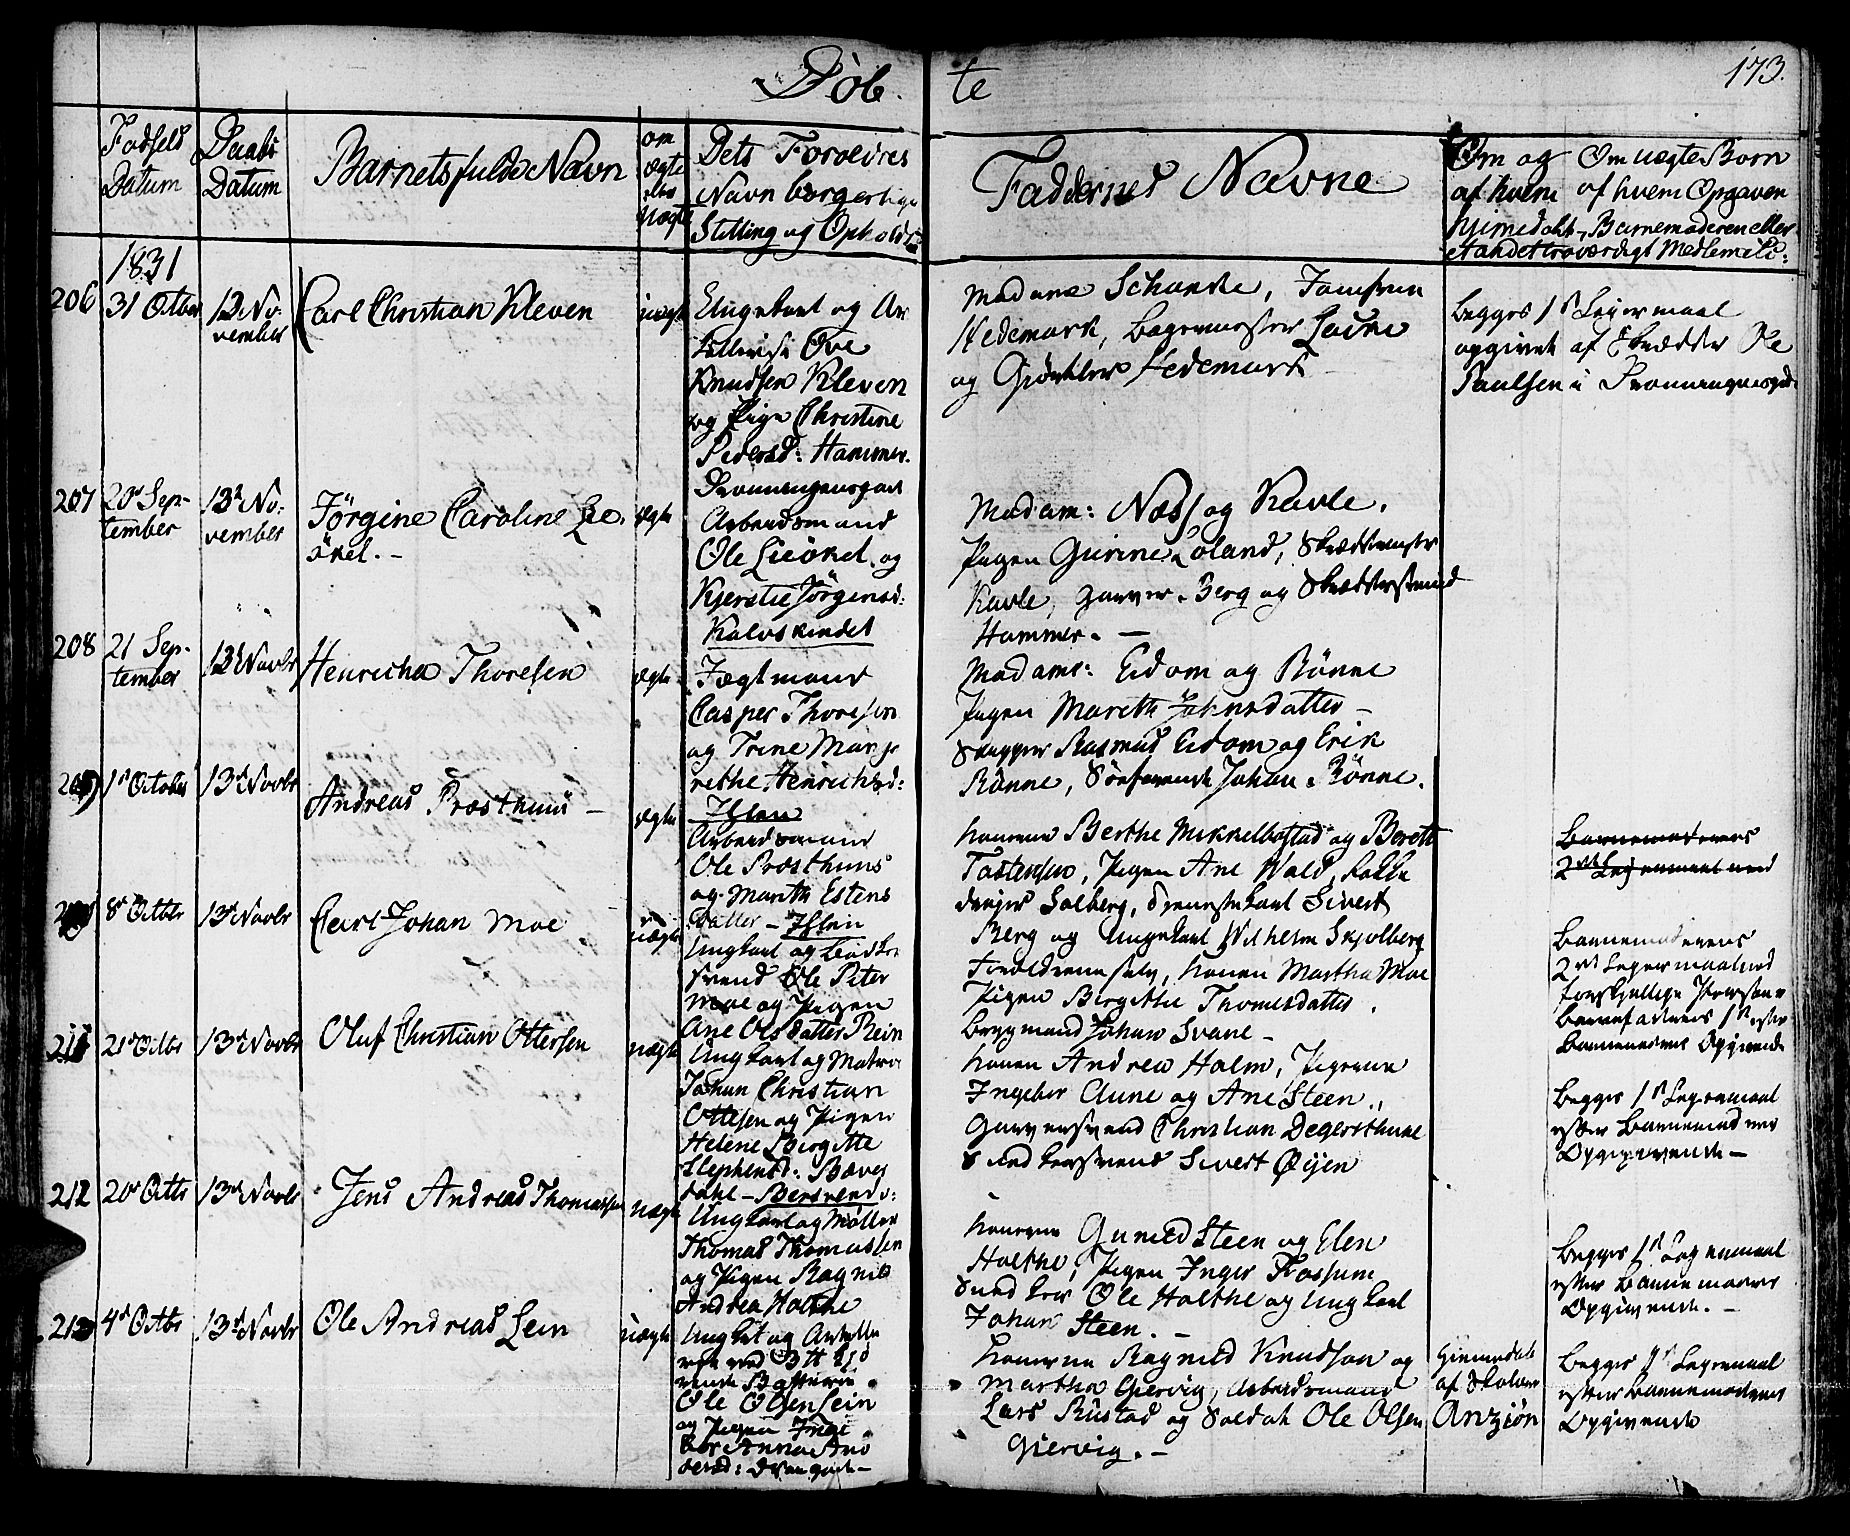 Døb. te
173.
Fødsels Datum
Daabs Datum
Barnets fulde Navn
om ægte eller uægte
Dets Forældres
Navn borgerlige
Stilling og Opholds
Faddernes Navne
Om og af hvem hjemedøbt
Om uægte Born
af hvem Opgaven
Barnemoderen eller
et andet troværdigt Medlem
1831
206
31 Octber
13 November
Carl Christian Kleven
uægte
Ungekarl og
Ove
Knudsen Kleven
og Pige Christine
Pedersd: Hammer.
Madame Schanke, Jomfrue
Hedemark, Bagermester
og Giørtler Hedemark
begges 1st Leiermaal
opgivet af Skrædder Ole
Paulsen i
207
20d September
13d November
Jörgine Caroline Lie
ökel. -
ægte
Arbeidsmand
Ole Lieökel og
Kjerstie Jörgensd:
Kalvskindet
Madam: Næss og Kavle.
Pigen Gurine Loland, Skrædermester
Kavle, Garver Berg og Skrædersvend
Hammer. -
208
21 September
13d Novbr
Henricha Thoresen
ægte
Jægtmand
Casper Thoresen
og Trine Margrethe Henrichsd:
Ihlen
Madame: Eidom og Rönne
Pigen Marith Johnsdatter -
Skipper Rasmus Eidom og Erik
Rönne, Søefarende Johan Rönne.
209
1st October
13d Novbr
Andreas Præsthuus -
ægte
Arbeidsmand
Ole Præsthuus
og Marith Estens
datter - Ihlen
Konerne Berthe Mikkelbostad og Bereth
Tostensen, Pigen Ane Wald,
Solberg, Tienestekarl Sivert
Berg og Ungekarl Wilhelm Skjolberg
Barnemoderens
2det Leiermaal med
8d Octbr
13d Novbr
Carl Johan Moe
uægte
Ungkarl og
Svend Ole Peter
Moe og Pigen
Ane Olsdatter Rein
Forældrene selv, Konen Martha Moe
Pigen Birgitha Thomesdatter.
Bergmand Johan Svane -
Barnemoderens
2det Leiermaal med
forskjellige Personer
Barnefaderens 1st efter
Barnemoderens Opgivende
211
21d Octbr
13d Novbr
Oluf Christian Ottersen
uægte
Ungkarl og Matros
Johan Christian
Ottesen og Pigen
Helene Birgitte
Stephensd. Bæver
Konen Andrea Holm, Pigerne
Ingebor Aune og Ane Steen.
Garversvend Christian Degersthune
Snedkersvend Sivert Öijen
Begges 1st Leiermaal
efter Barnemoderens
Opgivende -
212
20d Octbr
13d Novbr
Jens Andreas Thomassen
uægte
Ungkarl og Møller
Thomas Thomassen
og Pigen Ragnild
Andrea Holthe
Konerne Gunild Steen og Elen
Holthe, Pigen Inger Fossum
Snedker Ole Holthe og Ungkarl
Johan Steen. -
Begges 1st Leiermaal
efter Barnemoderens
Opgivende. -
213
4d Octbr
13d Novbr
Ole Andreas Lein
uægte
Ole Olsen Lein
og Pigen Inge
bor Anna
Konerne Ragnild Knudsen og
Martha Giervig, Arbeidsmand
Lars Rustad og Soldat Ole Olsen
Giervig. -
Hiemedøbt
af Skolær
Arnzión
Begges 1st Leiermaal
efter Barnemoderens
Opgivende